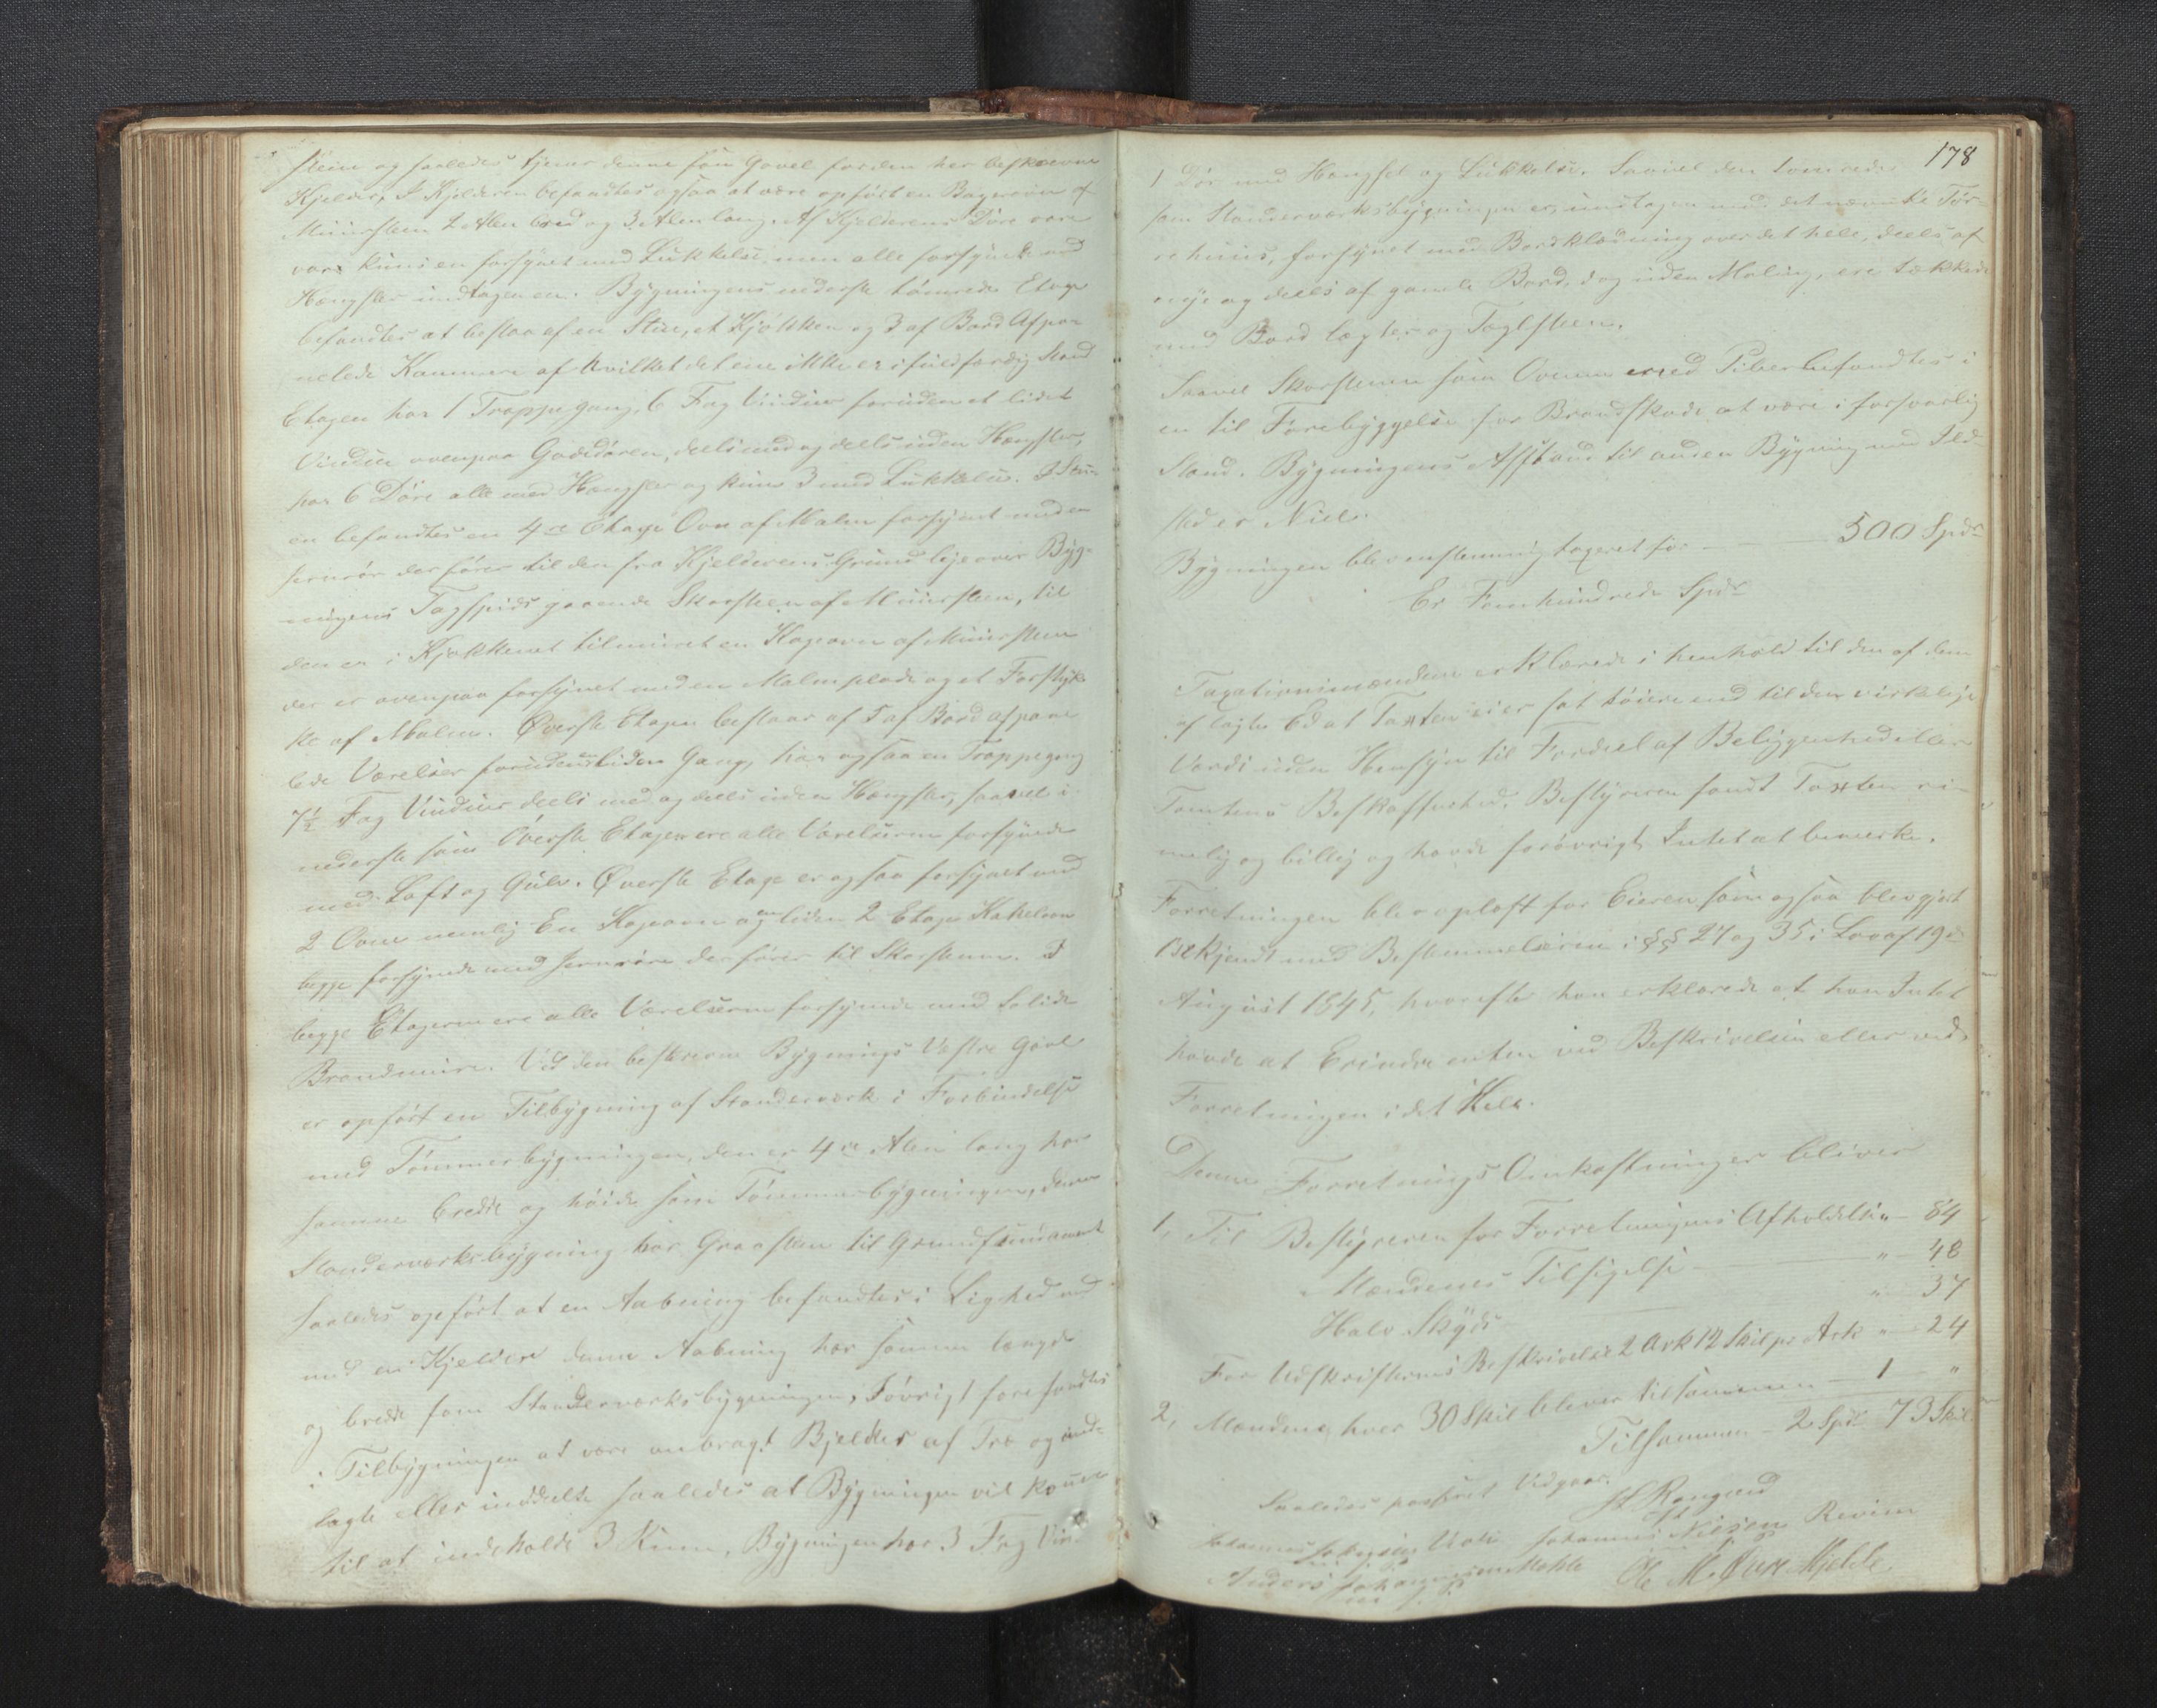 steen og saaledes tjener denne som Gavel for den her beskrevne
Kjelder, I Kjelderen befandtes ogsaa at være opført en Bagerovn af
Muursteen 2 Alen bred og 3 Alen lang. Af Kjelderens Døre vare
kuns en forsynet med Lukkelse, men alle forsynede med
Hængsler undtagen en. Bygningens nederste tømrede Etage
befandtes at bestaa af en Stue, et Kjøkken og 3 af Bord afpa-
nelede Kammere af hvilket det ene ikke er i fuldfærdig Stand
Etagen har 1 Trappegang, 6 Fag Vinduer foruden et lidet
Vindue ovenpaa Gadedøren, deels med og deels uden Hængsler,
har 6 Døre alle med Hængsler og kuns 3 med Lukkelse. I Stu-
en befandtes en 4re Etages Ovn af Malm forsynet med en
Jernrør der fører til den fra Kjelderens Grund lige over Byg-
ningens Tagspids gaaende Skorsteen af Muursteen, til
den er i Kjøkkenet tilmuret en Kageovn af Muursteen
der er ovenpaa forsynet med en Malmplade og et Forstyk-
ke af Malm. Øverste Etagen bestaar af 5 af Bord afpane
lede Værelser foruden en liden Gang, har ogsaa en Trappegang
7½ Fag Vinduer deels med og deels uden Hængsler, saavel i
nederste som Øverste Etagen ere alle Værelserne forsynede
med Loft og Gulv. Øverste Etage er ogsaa forsynet med
2 Ovne nemlig En Kageovn og en liden 2 Etages Kakelovn
begge forsynede med Jernrøre der fører til Skorstenen. I
begge Etagerne ere alle Værelserne forsynede med solide
Brandmure. Ved den beskrevne Bygnings Vestre Gavl
er opført en Tilbygning af Standerværk i Forbindelse
med Tømmerbygningen, den er 4re Alen lang har
samme bredde og høide som Tømmerbygningen, denne
Standerværksbygning har Graasteen til Grundfundament
saaledes opført at en Aabning befandtes i Lighed med
med en Kjelder denne Aabning har samme længde
og bredde som Standerværksbygningen, Iøvrigt forefandtes
i Tilbygningen at være anbragt Bjelker af Træ og ind-
lagte eller inddeelte saaledes at Bygningen vil komme
til at indeholde 3 Rum, Bygningen har 3 Fag Vin-
178
1 Dør med Hængsel og Lukkelse. Saavel den tømrede
som Standerværksbygningen er, undtagen med det nævnte Tør-
rehuus, forsynet med Bordklædning over det hele, deels af
nye og deels af gamle Bord, dog uden Maling, ere tækkede
med Bord lægter og Taglsteen.
Saavel Skorstenen som Ovnene med Piber befandtes i
en til Forebyggelse for Brandskade at være i forsvarlig
Stand. Bygningens Afstand til anden Bygning med Ild-
sted er Niels.
Bygningen blev enstemmig taxeret for 500 Spdr
Er Femhundrede Spdr
Taxationsmændene erklærede i henhold til den af dem
aflagte Ed at Taxten ei er sat høiere end til den virkelige
Værdi uden Hensyn til Fordeel af Beliggenhed eller
Tomtens Beskaffenhed. Bestyreren fandt Taxten ri-
melig og billig og havde forøvrigt Intet at bemærke.
Forretningen blev oplæst for Eieren som ogsaa blev gjort
bekjendt med Bestemmelserne i §§ 27 og 35 i Lov af 19de
August 1845, hvorefter han erklærede at han Intet
havde at Erindre enten ved Beskrivelsen eller ved
Forretningen i det Hele.
Denne Forretnings Omkostninger bliver
1, Til Bestyreren for Forretningens Afholdelse „ – 84
Mændenes Tilsigelse „ – 48
Halv Skyds „ – 37
For Udskrifternes Beskrivelse 2 Ark 12 Skil pr Ark „ – 24
2, Mændene, hver 30 Skil bliver tilsammen 1 „
Tilsammen – 2 Spd 73 Skil
Saaledes passeret Vidgaar.
Johannes Nilsen Revim
Anders Johannesen Mehle